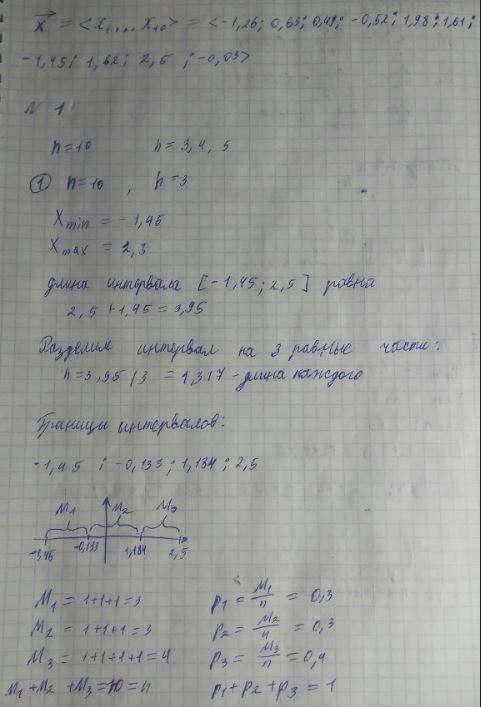 x⃗ = <x₁ ... x₁₀> = <-1,26; 0,63; 0,49; -0,52; 1,98; 1,61;
-1,45; 1,62; 2,5 ; -0,03>
N 1
n=10 h = 3, 4, 5
① n=10 , h=3
Xmin = -1,45
Xmax = 2,3
длина интервала [-1,45; 2,5] равна
2,5 + 1,45 = 3,95
Разделим интервал на 3 равные части:
h=3,95/3 = 1,317 - длина каждого
Границы интервалов:
-1,45 ; -0,133 ; 1,184 ; 2,5
M₁ M₂ M₃
-1,45 -0,133 1,184 2,5
M₁ = 1+1+1=3 p₁ = M₁/n = 0,3
M₂ = 1+1+1=3 p₂ = M₂/n = 0,3
M₃ = 1+1+1+1=4 p₃ = M₃/n = 0,4
M₁ + M₂ + M₃ = 10 = n p₁+p₂+p₃ = 1